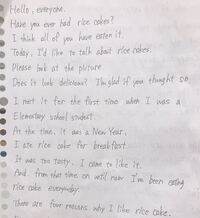 Hello, everyone.
Have you ever had rice cakes?
I think all of you have eaten it.
Today, I'd like to talk about rice cakes.
Please look at the picture.
Does it look delicious? I'm glad if you thought so
I met it for the first time when I was a
Elementary school student.
At the time, it was a New Year,
I ate rice cake for breakfast.
It was too tasty. I came to like it.
And, from that time on until now I've been eating
rice cake everyday.
There are four reasons why I like rice cake.